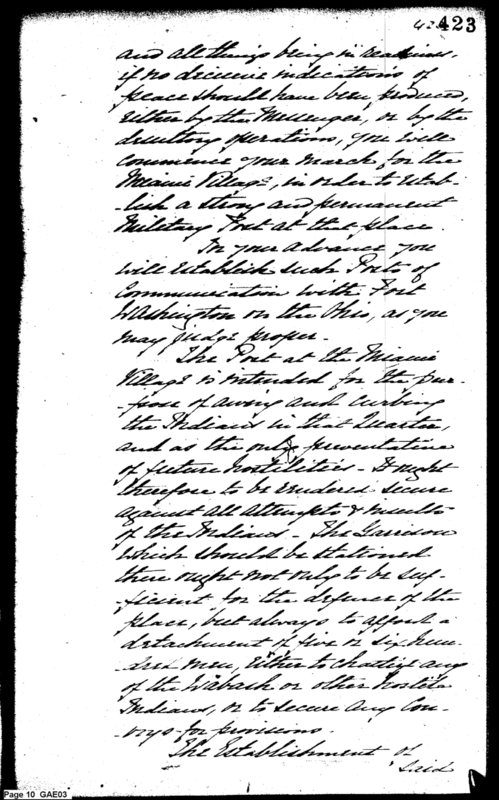 423
and all things being in readiness,
if no decisive indications of
peace should have been produced,
either by the Messenger, or by the
desultory operations, you will
commence your March for the
Miami Village, in order to estab-
-lish a strong and permanent
Military Post at that place.
In your advance you
will establish such Posts of
Communication with Fort
Washington on the Ohio, as you
may judge proper.
The Post at the Miami
Village is intended for the pur-
-pose of awing and curbing
the Indians in that Quarter,
and as the only preventative
of future hostilities - It ought
therefore to be rendered secure
against all attempts & insults
of the Indians. The Garrison
which should be stationed
there ought not only to be suf-
-ficient for the defence of the
place, but always to afford a
detachment of five or six hun-
-dred men, either to chastize any
of the Wabash or other hostile
Indians, or to secure any Con-
-voys for provisions
The Establishment of
said
Page 10 GAE03